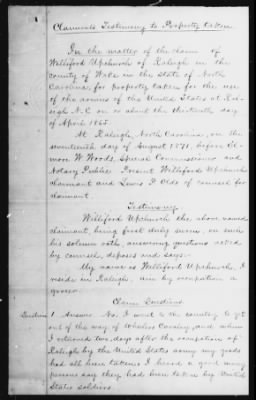 Claimants Testimony to Property taken
In the matter of the claim of
Williford Upchurch of Raleigh in the
county of Wake in the state of North
Carolina, for property taken for the use
of the armies of the United States at Ral-
eigh N.C. on or about the thirteenth day
of April 1865.
At Raleigh, North Carolina, on the
seventeenth day of August 1871, before El-
more W Woods, Special Commissioner and
Notary Public Present Williford Upchurch
claimant and Lewis P. Olds of counsel for
claimant.
Testimony
Williford Upchurch the above named
claimant, being first duly sworn, on such
his solemn oath, answering questions asked
by counsel, deposes and says.
My name is Williford Upchurch, I
reside in Raleigh, am by occupation a
grocer.
Claim Questions
Question 1 Answer. No. I went to the country to get
out of the way of Wheelers Cavalry, and when
I returned two days after the occupation of
Raleigh by the United States army my goods
had all been taken. I heard a good many
persons say they had been taken by United
States soldiers.